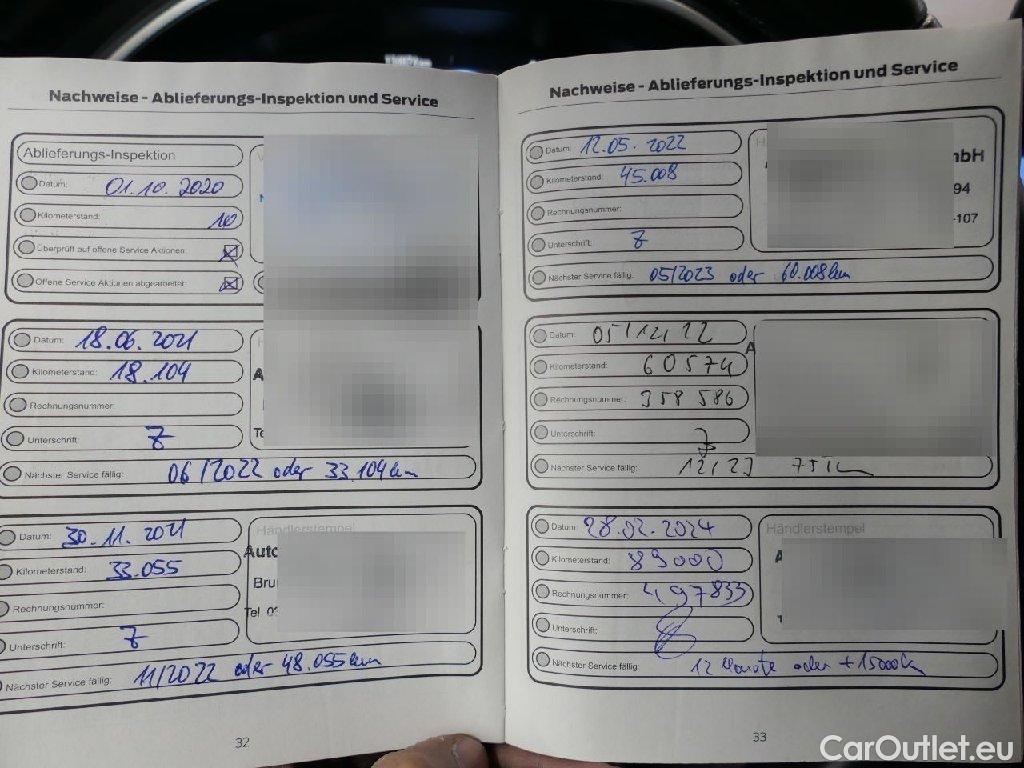 Nachweise - Ablieferungs-Inspektion und Service
Ablieferungs-Inspektion
Datum: 01.10.2020
Kilometerstand: 10
Überprüft auf offene Service Aktionen: ☒
Offene Service Aktionen abgearbeitet: ☒
Datum: 18.06.2021
Kilometerstand: 18.104
Rechnungsnummer:
Unterschrift:
Nächster Service fällig: 06/2022 oder 33.104km
Datum: 30.11.2021
Kilometerstand: 33.055
Rechnungsnummer:
Unterschrift:
Nächster Service fällig: 11/2022 oder 48.055km
Händlerstempel
Auto
Bru
Tel
32
Nachweise - Ablieferungs-Inspektion und Service
Datum: 12.05.2022
Kilometerstand: 45.008
Rechnungsnummer:
Unterschrift:
Nächster Service fällig: 05/2023 oder 60.008km
mbH
94
-107
Datum: 05/12/22
Kilometerstand: 60574
Rechnungsnummer: 358586
Unterschrift:
Nächster Service fällig: 12/23
Datum: 28.02.2024
Kilometerstand: 89000
Rechnungsnummer: 497833
Unterschrift:
Nächster Service fällig: 12 Monate oder +15000km
Händlerstempel
33
CarOutlet.eu